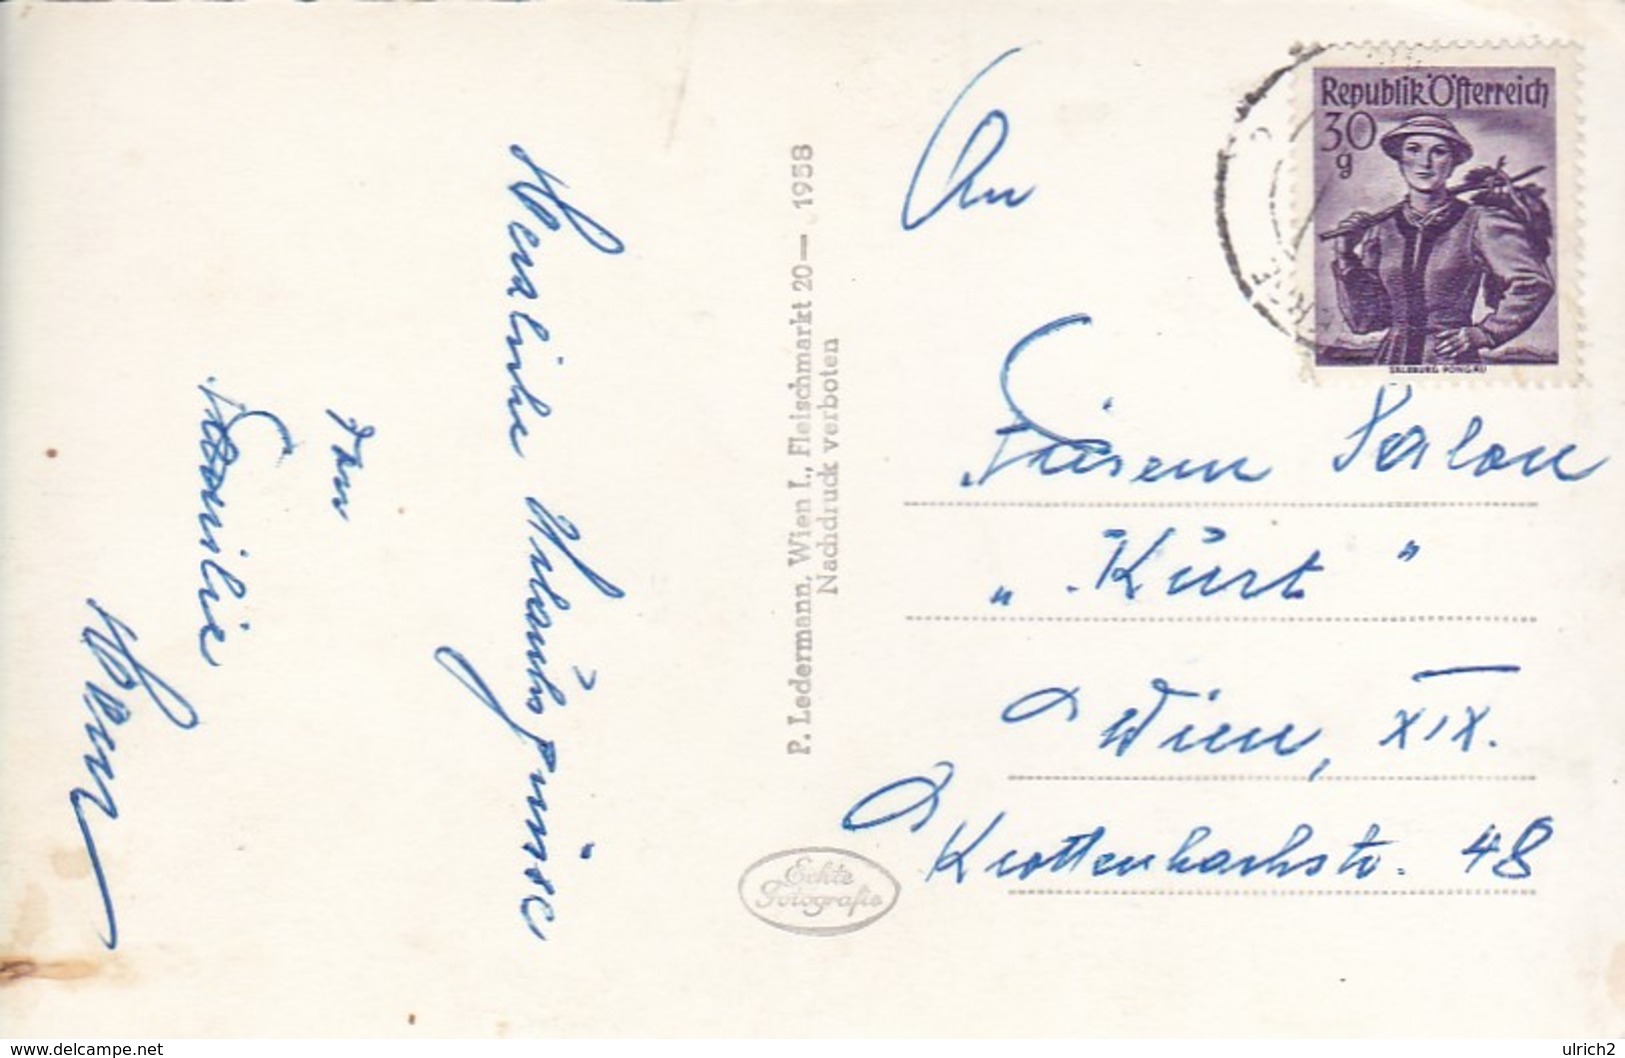 Herzliche Urlaubsgrüsse
Ihre
Familie
P. Ledermann, Wien I., Fleischmarkt 20 — 1958
Nachdruck verboten
Echte
Fotografie
An
Republik Österreich
30
g
SALZBURG PONGAU
"Kurt"
Wien, XIX.
Krottenbachstr. 48
www.delcampe.net
ulrich2